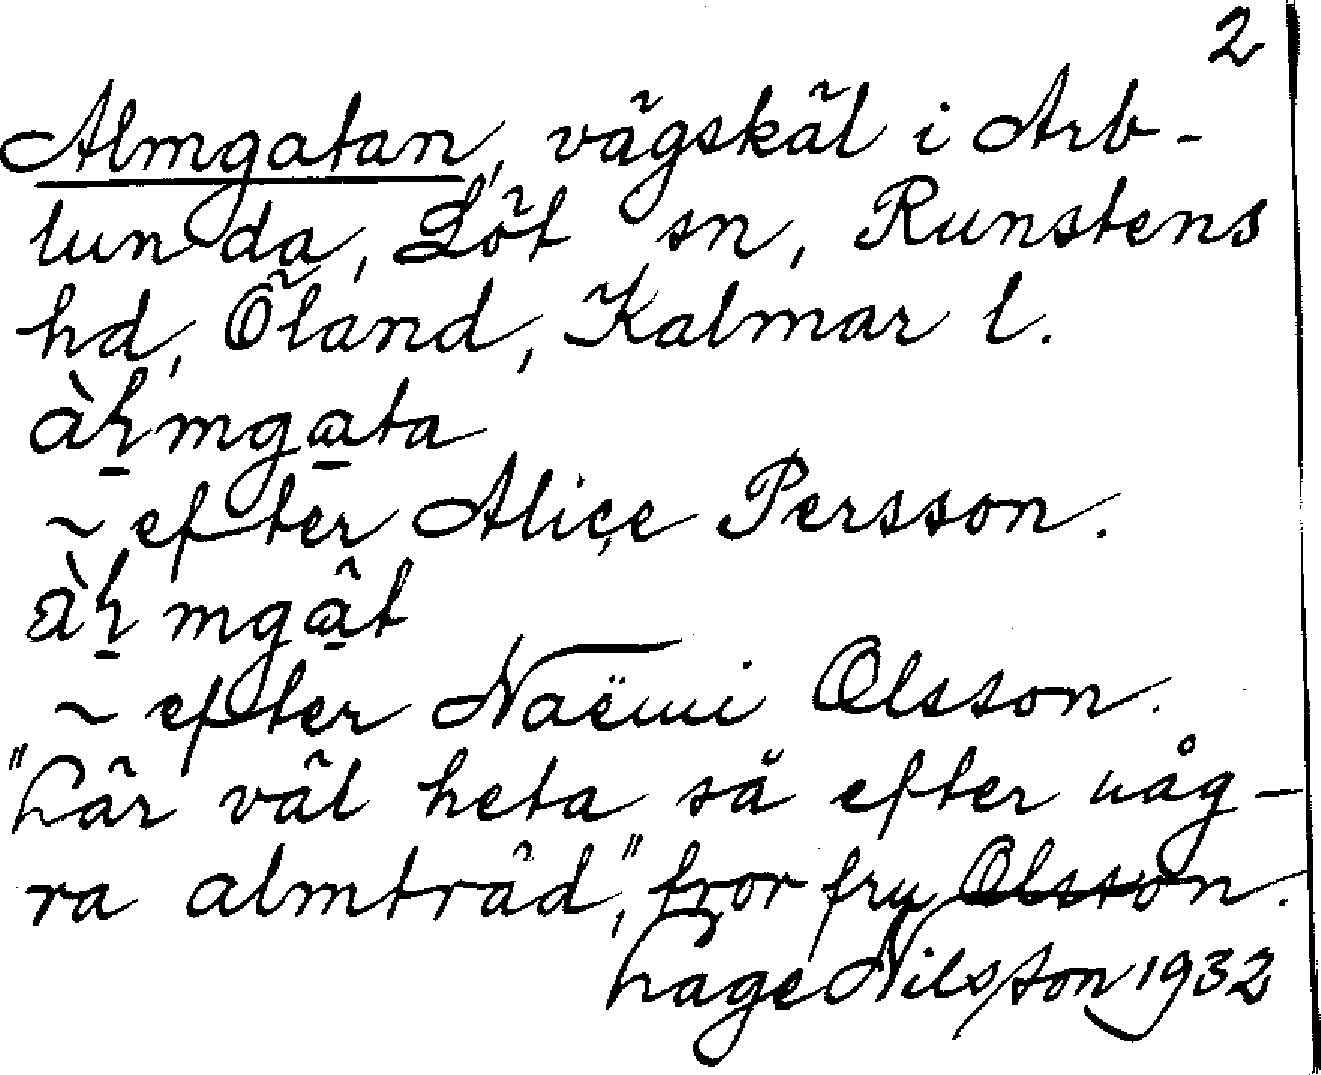 2
Almgatan, vägskäl i Arb-
lunda, Löt sn, Runstens
hd, Öland, Kalmar l.
~ efter Alice Persson.
~ efter Naëmi Olsson.
"Lär väl heta så efter någ-
ra almträd," tror fru Olsson.
Lage Nilsson 1932